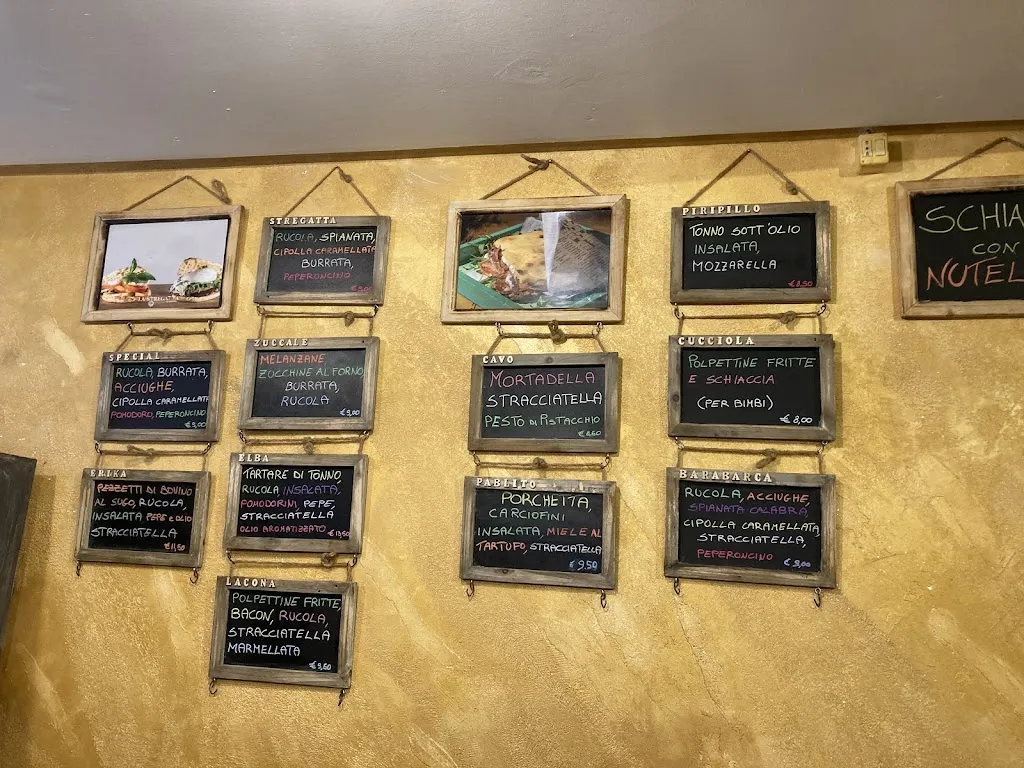 SPECIAL
RUCOLA, BURRATA,
ACCIUGHE,
CIPOLLA CARAMELLATA
POMODORO, PEPERONCINO
€ 9,00
ERIKA
PEZZETTI DI BOVINO
AL SUGO, RUCOLA,
INSALATA PEPE E OLIO
STRACCIATELLA
€ 11,50
STREGATTA
RUCOLA, SPIANATA,
CIPOLLA CARAMELLATA
BURRATA,
PEPERONCINO
ZUCCALE
MELANZANE
ZOCCHINE AL FORNO
BURRATA,
RUCOLA
€ 9,00
ELBA
TARTARE DI TONNO
RUCOLA INSALATA,
POMODORINI, PEPE,
STRACCIATELLA
OLIO AROMATIZZATO € 13,50
LACONA
POLPETTINE FRITTE,
BACON, RUCOLA,
STRACCIATELLA
MARMELLATA
€ 9,50
CAVO
MORTADELLA
STRACCIATELLA
PESTO DI PISTACCHIO
€ 8,50
PABLITO
PORCHETTA,
CARCIOFINI
INSALATA, MIELE AL
TARTUFO, STRACCIATELLA
€ 9,50
PIRIPILLO
TONNO SOTT'OLIO
INSALATA,
MOZZARELLA
€ 8,50
CUCCIOLA
POLPETTINE FRITTE
E SCHIACCIA
(PER BIMBI)
€ 8,00
BARABARCA
RUCOLA, ACCIUGHE,
SPIANATA CALABRA,
CIPOLLA CARAMELLATA,
STRACCIATELLA,
PEPERONCINO € 9,00
SCHIA
CON
NUTEL